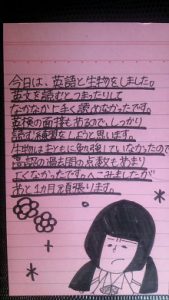 今日は、英語と生物をしました。
英文を読むとつまったりして
なかなか上手く読めなかったです。
英検の面接もあるので、しっかり
読す練習をしようと思います。
生物はおもに勉強していなかったので
高認の過去問の点数もあまり
よくなかったです。へこみましたが
あと1カ月頑張ります。